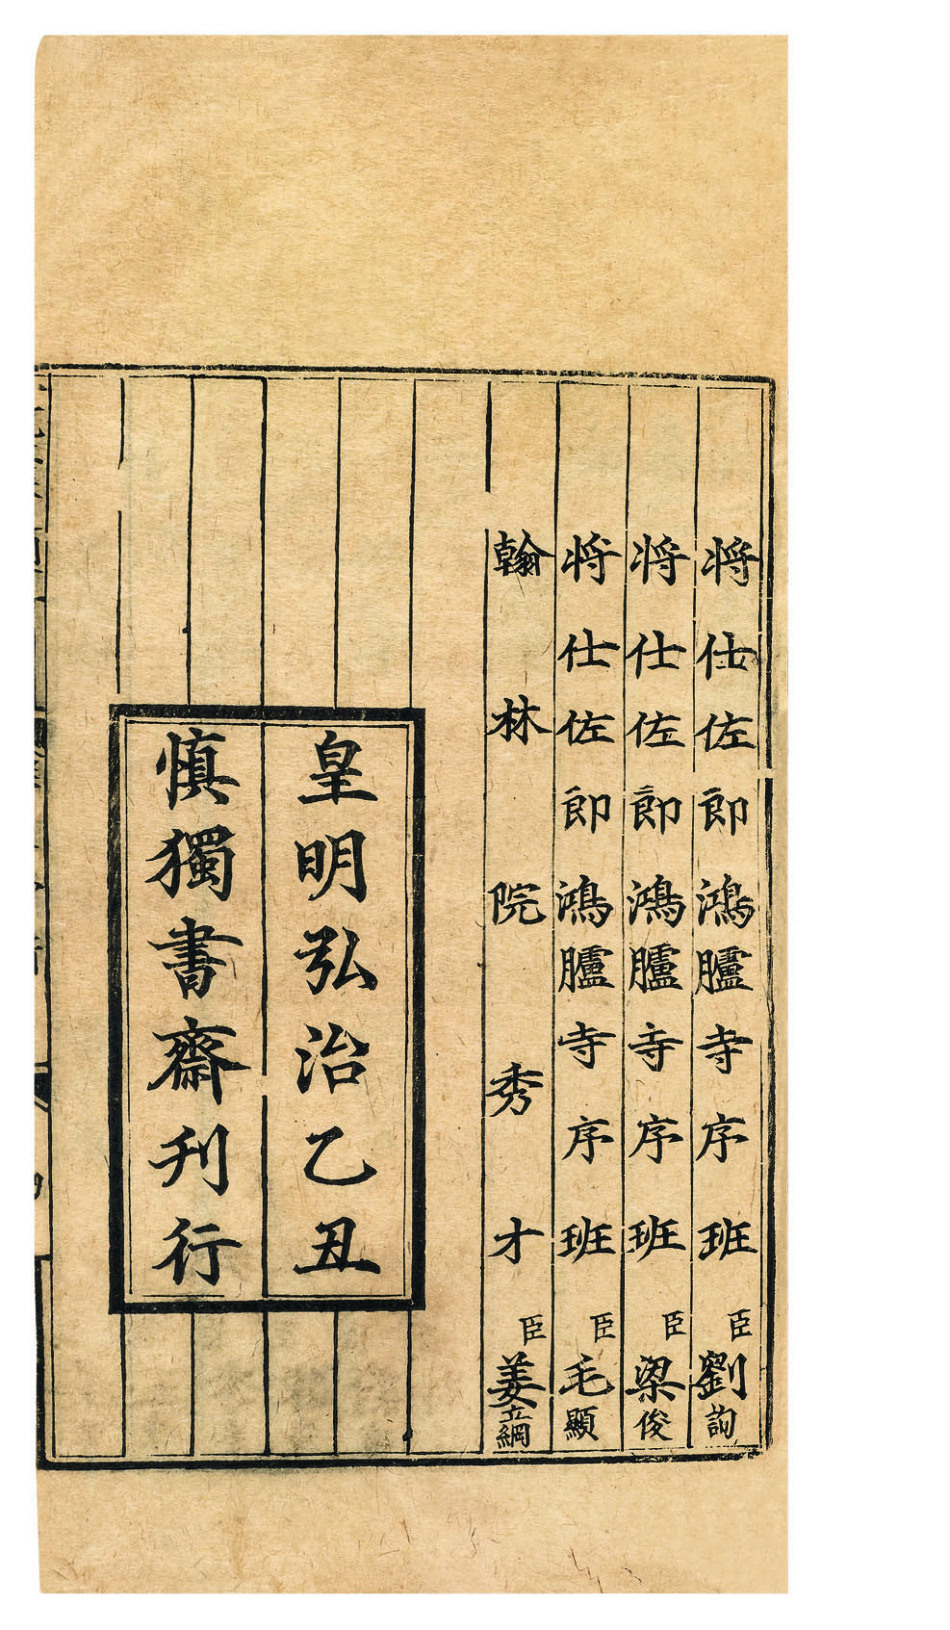 将仕佐郎鴻臚寺序班臣劉詢
将仕佐郎鴻臚寺序班臣梁俊
将仕佐郎鴻臚寺序班臣毛顯
翰林院秀才臣姜立綱
皇明弘治乙丑
慎獨書齋刊行